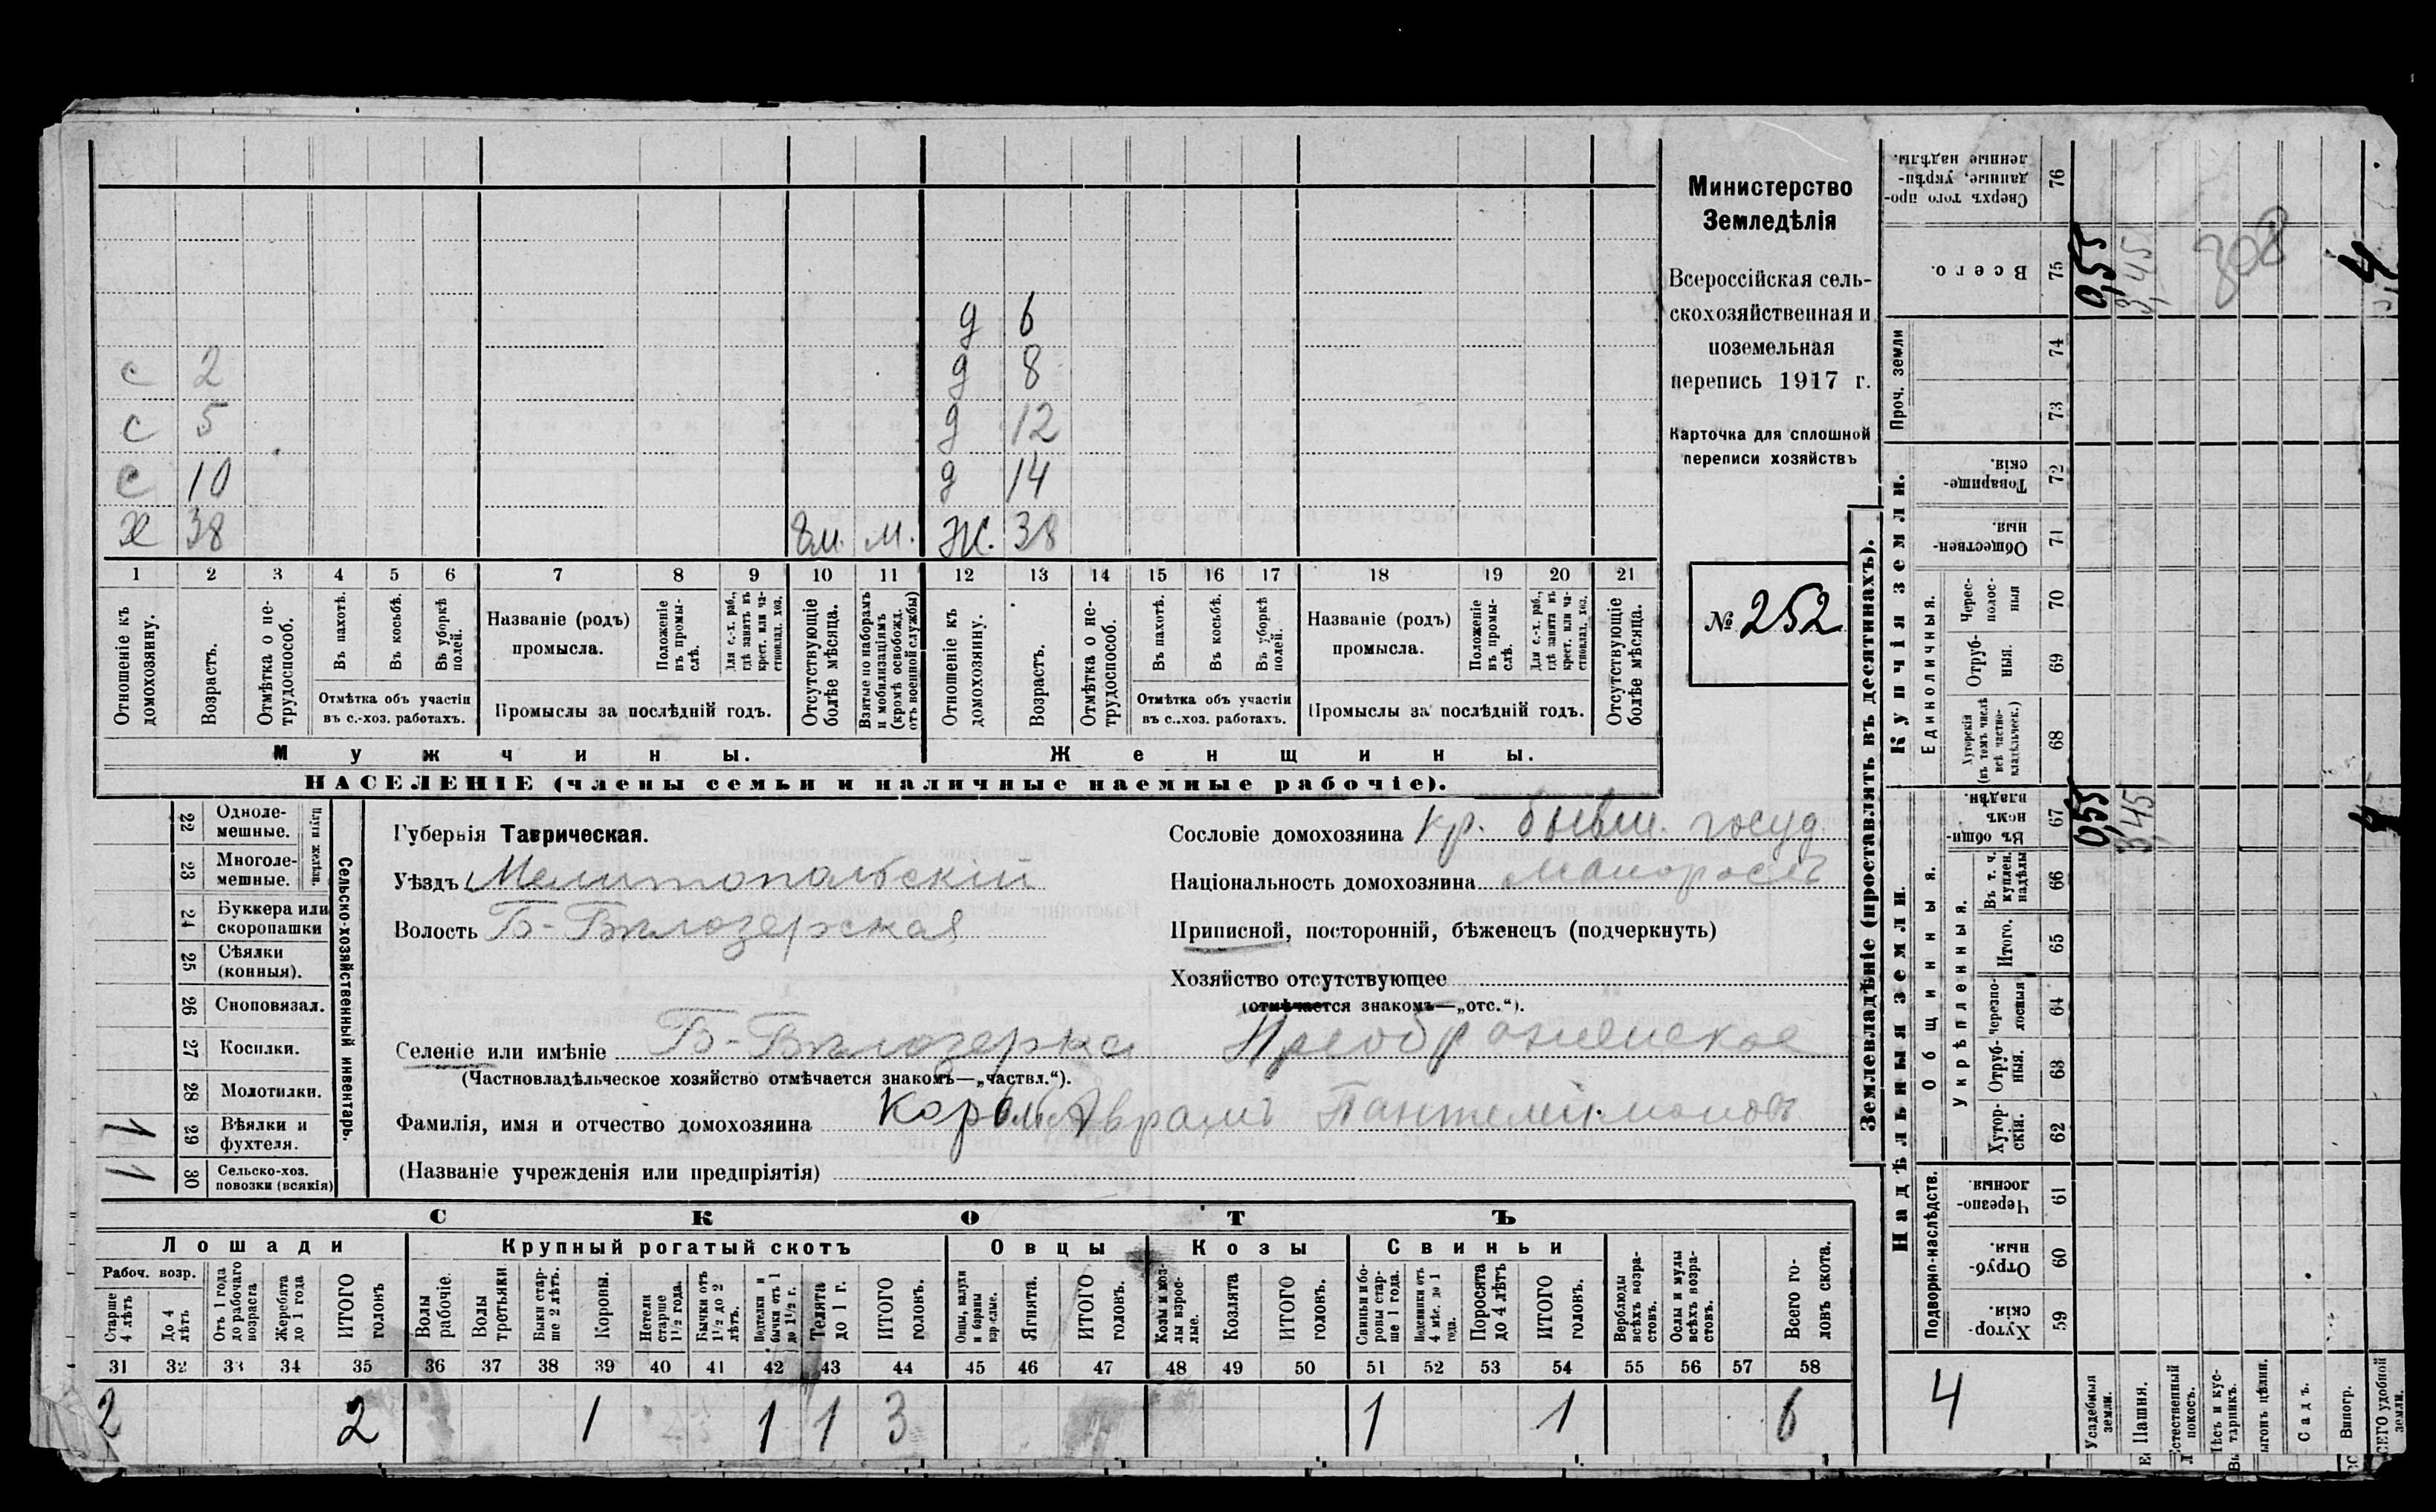 Министерство
Земледѣлія
Всероссійская сель-
скохозяйственная и
поземельная
перепись 1917 г.
Карточка для сплошной
переписи хозяйствъ
№ 252
д 6
с 2 д 8
с 5 д 12
с 10 д 14
х 38 8м. м. Ж. 38
1 2 3 4 5 6 7 8 9 10 11 12 13 14 15 16 17 18 19 20 21
Отношеніе къ домохозяину.
Возрастъ.
Отмѣтка о не-трудоспособ.
Въ пахотѣ.
Въ косьбѣ.
Въ уборкѣ полей.
Отмѣтка объ участіи
въ с.-хоз. работахъ.
Названіе (родъ)
промысла.
Положеніе въ промы-слѣ.
Для с.-х. раб., гдѣ занятъ въ крест. или ча-стновлад. хоз.
Промыслы за послѣдній годъ.
Отсутствующіе болѣе мѣсяца.
Взятые по наборамъ и мобилизаціямъ (кромѣ освобожд. отъ военной службы)
Отношеніе къ домохозяину.
Возрастъ.
Отмѣтка о не-трудоспособ.
Въ пахотѣ.
Въ косьбѣ.
Въ уборкѣ полей.
Отмѣтка объ участіи
въ с.-хоз. работахъ.
Названіе (родъ)
промысла.
Положеніе въ промы-слѣ.
Для с.-х. раб., гдѣ занята въ крест. или ча-стновлад. хоз.
Промыслы за послѣдній годъ.
Отсутствующіе болѣе мѣсяца.
Мужчины. Женщины.
НАСЕЛЕНІЕ (члены семьи и наличные наемные рабочіе).
Сельско-хозяйственный инвентарь.
Плуги желѣзн.
22 Одноле-мешные.
23 Многоле-мешные.
24 Буккера или скоропашки
25 Сѣялки (конныя).
26 Сноповязал.
27 Косилки.
28 Молотилки.
1 29 Вѣялки и фухтеля.
1 30 Сельско-хоз. повозки (всякія)
Губернія Таврическая.
Уѣздъ Мелитопольскій
Волость Б-Бѣлозерская
Селеніе или имѣніе Б-Бѣлозерка Преображенское
(Частновладѣльческое хозяйство отмѣчается знакомъ—„частвл.“).
Фамилія, имя и отчество домохозяина Король Аврамъ Пантелеймоновъ
(Названіе учрежденія или предпріятія)
Сословіе домохозяина кр. бывш. госуд.
Національность домохозяина малороссъ
Приписной, посторонній, бѣженецъ (подчеркнуть)
Хозяйство отсутствующее
(отмѣчается знакомъ—„отс.“).
СКОТЪ
Лошади Крупный рогатый скотъ Овцы Козы Свиньи
Рабоч. возр.
Старше 4 лѣтъ
До 4 лѣтъ
Отъ 1 года до рабочаго возраста
Жеребята до 1 года
ИТОГО головъ
Волы рабочіе.
Волы третьяки
Быки стар-ше 2 лѣтъ.
Коровы.
Нетели старше 1½ года.
Бычки отъ 1½ до 2 лѣтъ.
Подтелки и бычки отъ 1 до 1½ г.
Телята до 1 г.
ИТОГО головъ.
Овцы, валухи и бараны взрослые.
Ягнята.
ИТОГО головъ.
Козы и коз-лы взрос-лые.
Козлята
ИТОГО головъ.
Свиньи и бо-ровы стар-ше 1 года.
Подсвинки отъ 4 мѣс. до 1 года.
Поросята до 4 лѣтъ
ИТОГО головъ.
Верблюды всѣхъ возра-стовъ.
Ослы и мулы всѣхъ возра-стовъ.
Всего го-ловъ скота.
31 32 33 34 35 36 37 38 39 40 41 42 43 44 45 46 47 48 49 50 51 52 53 54 55 56 57 58
2 2 1 1 1 3 1 1 6
Землевладѣніе (проставлять въ десятинахъ).
Надѣльныя земли. Купчія земли.
Проч. земли
Подворно-наслѣдств.
Общинныя.
Укрѣпленныя.
Единоличныя.
Хутор-скія. 59
Отруб-ныя. 60
Черезпо-лосныя. 61
Хутор-скія. 62
Отруб-ныя. 63
Черезпо-лосныя 64
Итого. 65
Въ т. ч. куплен. надѣлы 66
Въ общи-номъ владѣн. 67
Хуторскія (въ томъ числѣ всѣ частно-владѣльческ.) 68
Отруб-ныя. 69
Черес-полос-ныя 70
Обществен-ныя. 71
Товарище-скія. 72
73
74
Всего. 75
Сверхъ того про-данные, укрѣп-ленные надѣлы. 76
4
Усадебныя земли. 0,55 0,55
Пашня. 3,45 3,45
Естественный покосъ.
Садъ.
Виногр.
4 4
308